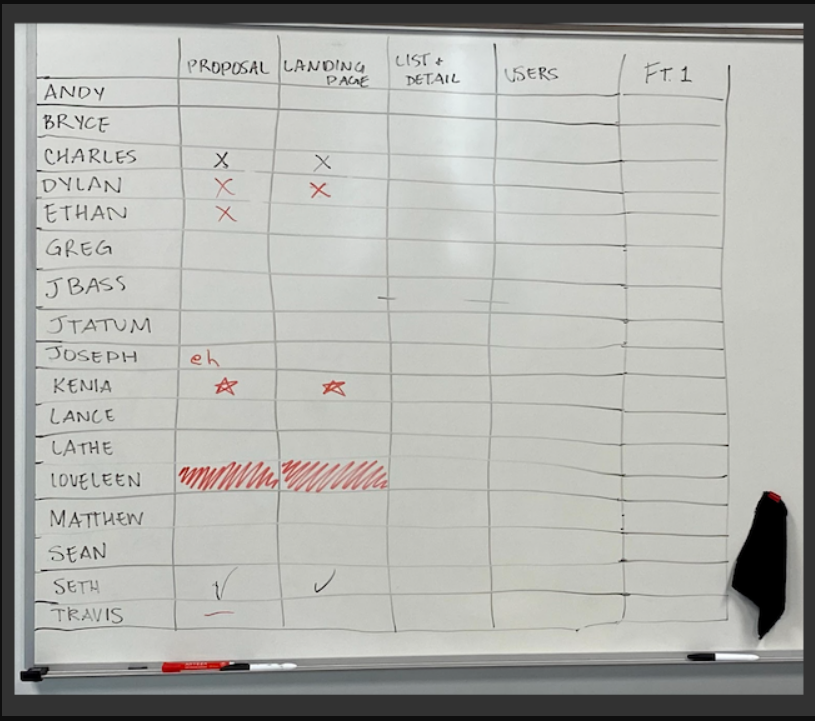 PROPOSAL LANDING PAGE LIST + DETAIL USERS FT. 1
ANDY
BRYCE
CHARLES X X
DYLAN X X
ETHAN X
GREG
JBASS
JTATUM
JOSEPH eh
KENIA
LANCE
LATHE
LOVELEEN
MATTHEW
SEAN
SETH
TRAVIS